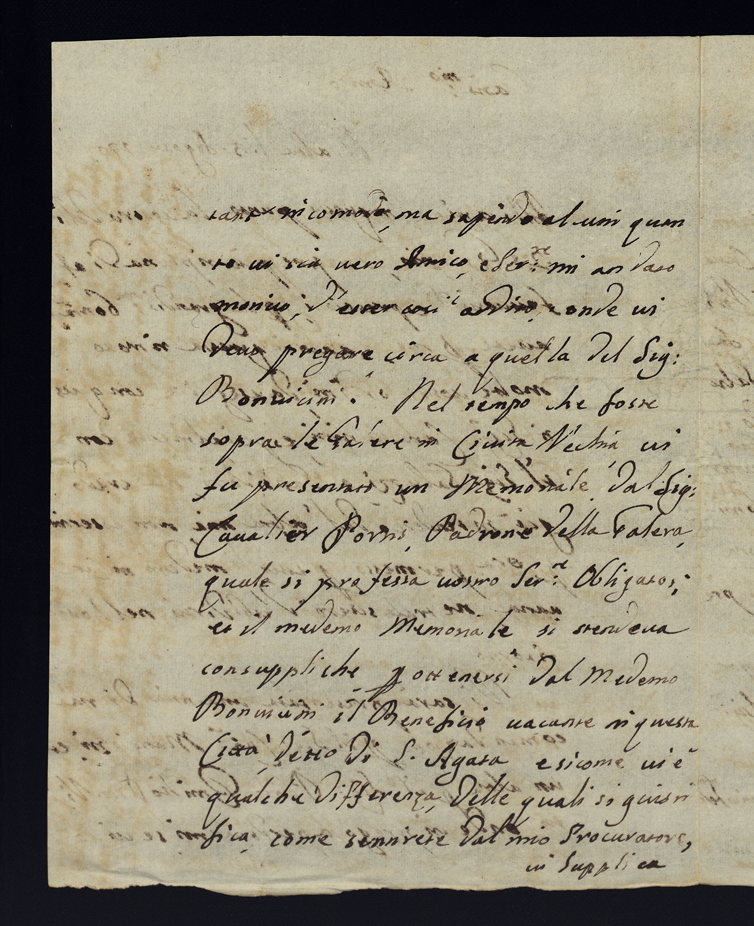 tant incomodo, ma sapendo al uni quan
to ui sia uero Amico, e Ser.re mi an dato
motiuo, d'esser cosi ardito, onde ui
deuo pregare circa a quella del Sig:
Bonuicini. Nel tempo che foste
sopra le Galere in Ciuita Vechia ui
fu presentato un Memoriale dal Sig:
Caualier Porris, Padrone della Galera,
quale si professa uostro Ser.re Obligatos:
et il medemo Memoriale si stendeua
con suppliche p ottenersi dal Medemo
Bonuicini il Beneficio uacante in questa
Città, detto di S. Agata e sicome ui è
qualche differenza, delle quali si giusti
fica, come sentirete dal mio Procuratore,
ui Supplica